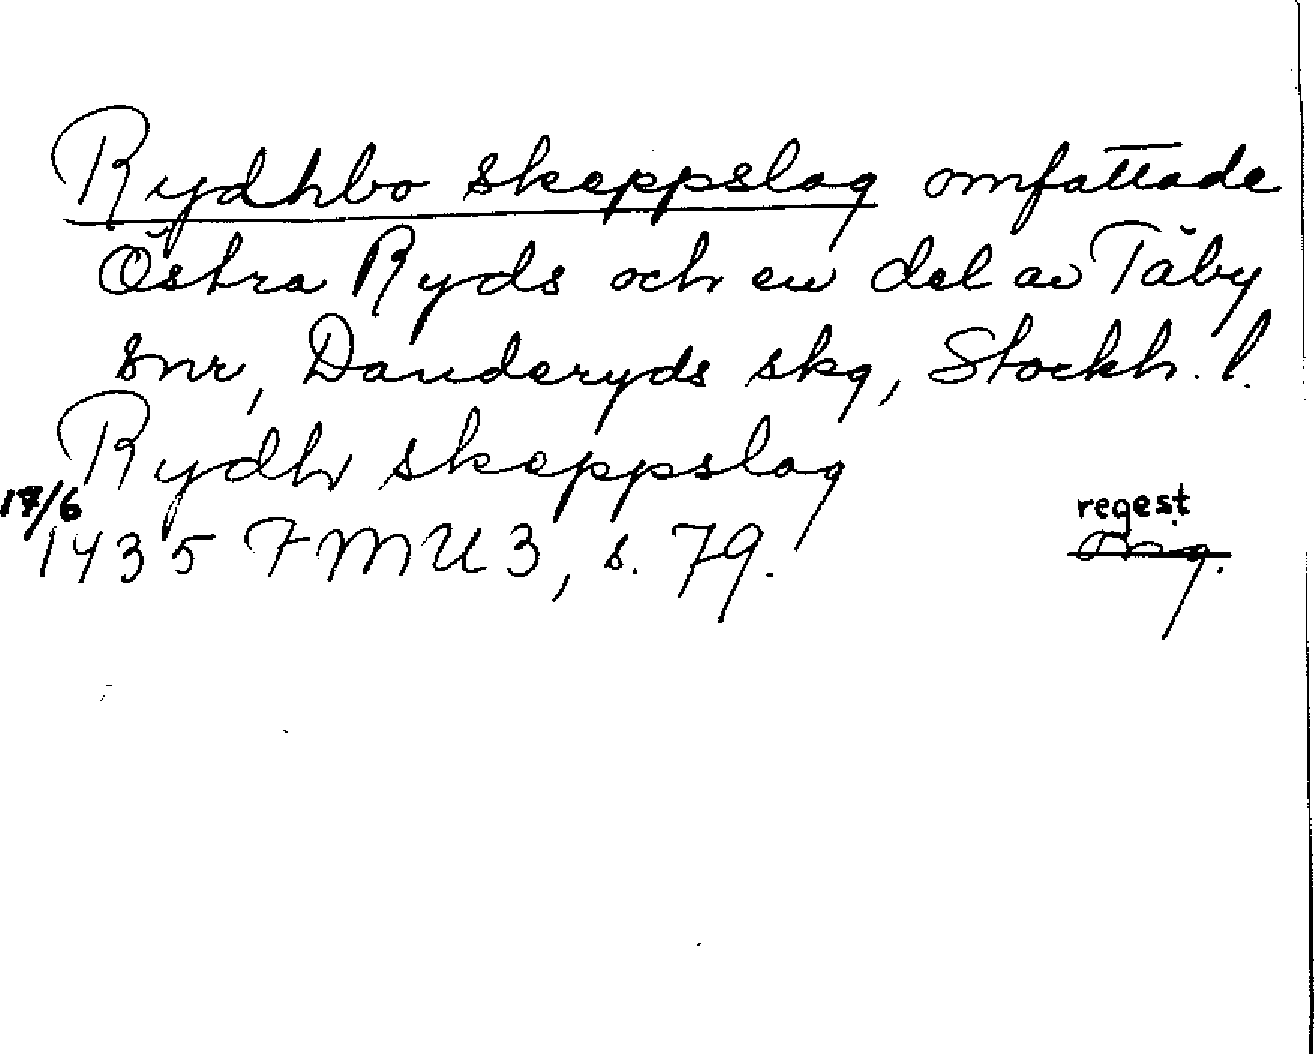 Rydhbo skeppslag omfattade
Östra Ryds och en del av Täby
snr, Danderyds skg, Stockh. l.
Rydh skeppslag
17/6
1435 FMU 3, s. 79.
regest